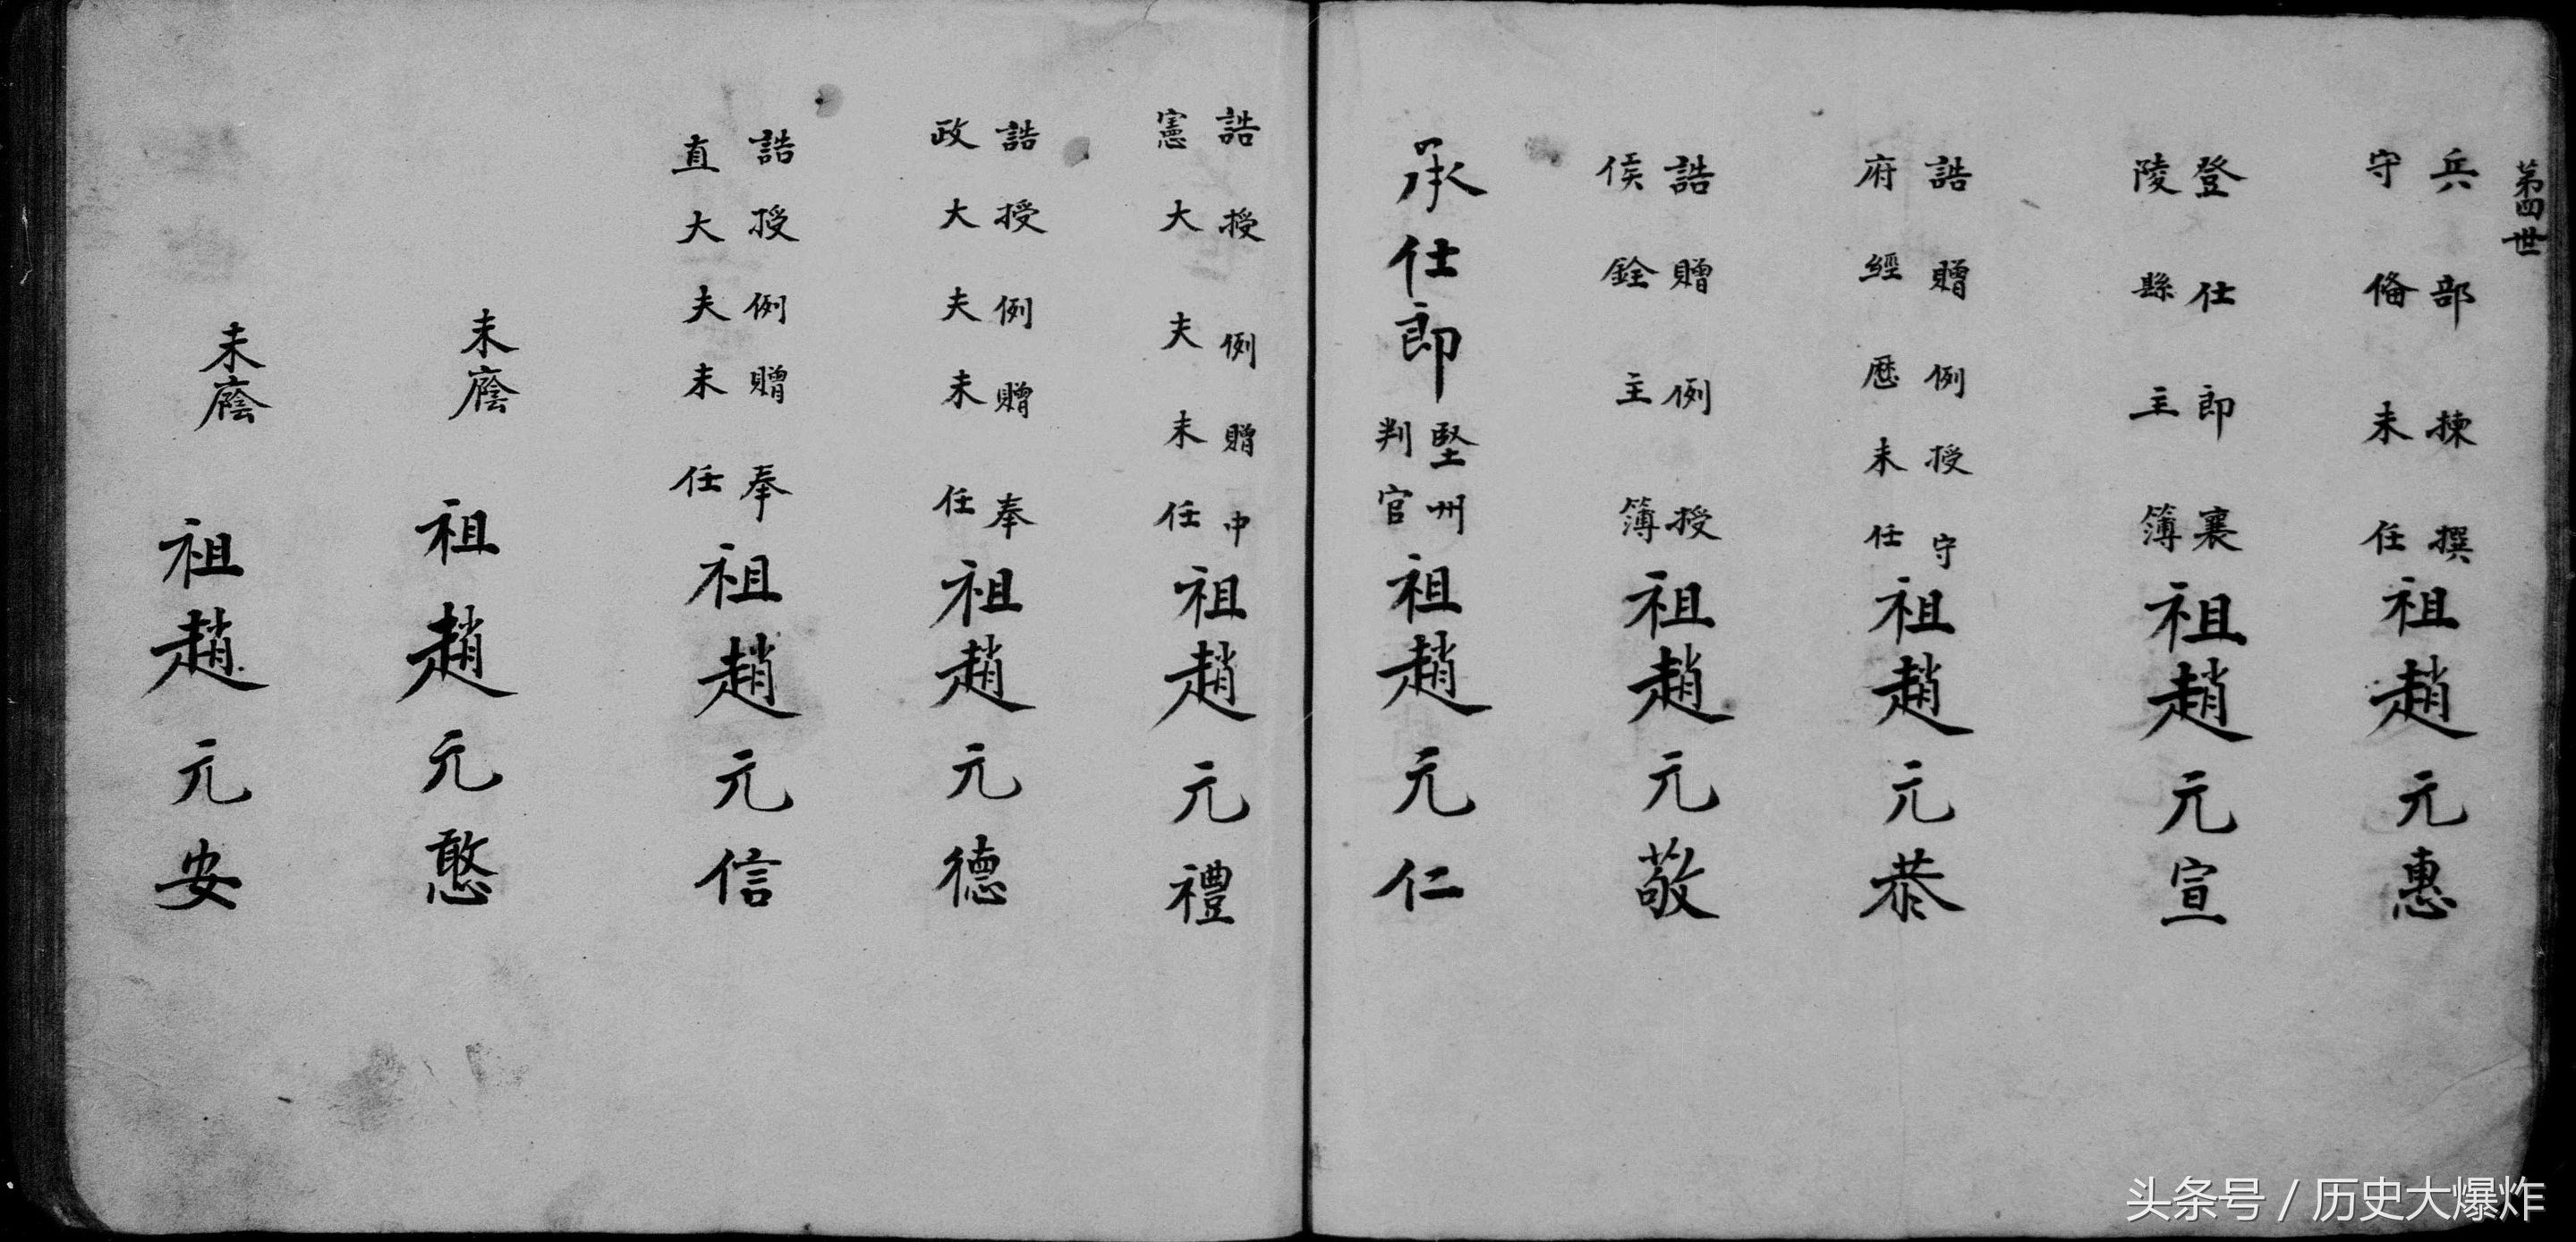 第四世
兵部揀撰
守俻未任
祖趙元惠
登仕郎襄
陵縣主簿
祖趙元宣
誥贈例授守
府經歷未任
祖趙元恭
誥贈例授
侯銓主簿
祖趙元敬
承仕郎
堅州
判官
祖趙元仁
誥授例贈中
憲大夫未任
祖趙元禮
誥授例贈奉
政大夫未任
祖趙元德
誥授例贈奉
直大夫未任
祖趙元信
未廕
祖趙元憨
未廕
祖趙元安
头条号 / 历史大爆炸